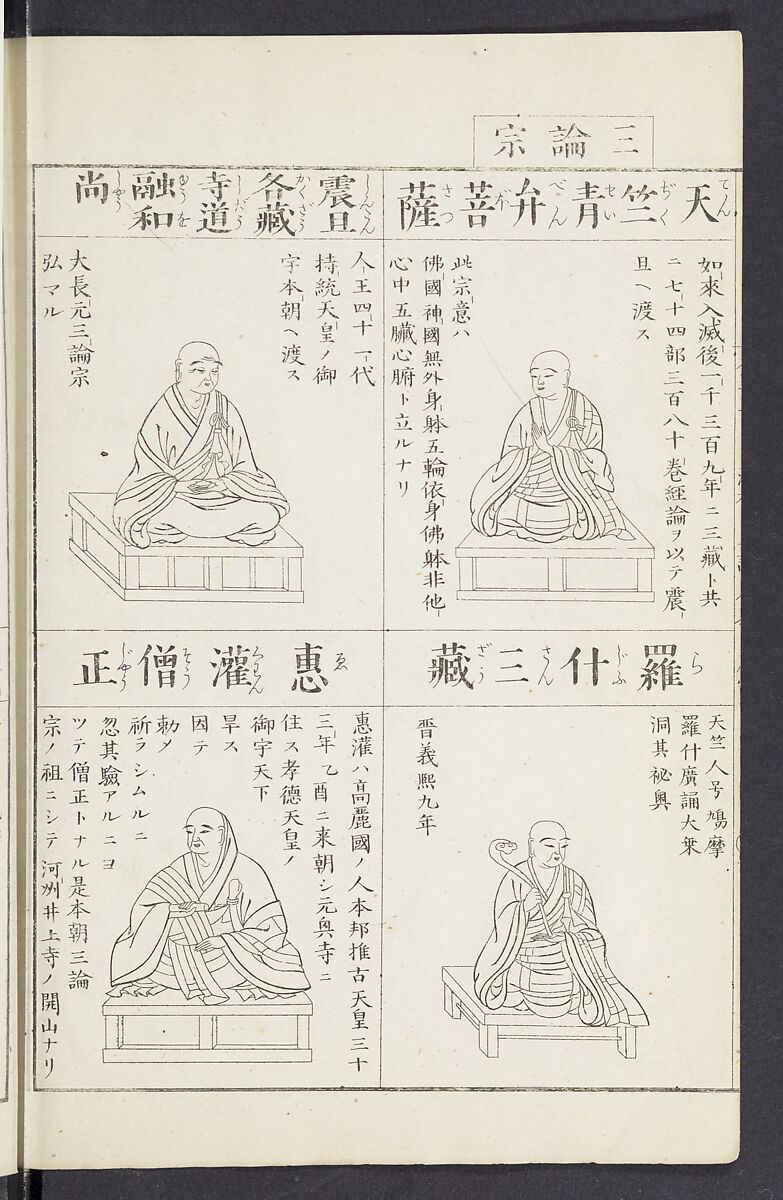 三論宗
天竺青弁菩薩
てんぢくせいべんぼさつ
如來入滅後一千三百九年ニ三藏ト共
ニ七十四部三百八十巻経論ヲ以テ震
旦ヘ渡ス
此宗意ハ
佛國神國無外身躰五輪依身佛躰非他
心中五臓心腑ト立ルナリ
震旦各藏寺道融和尚
しんたんかくざうじだうゆうをしやう
人王四十一代
持統天皇ノ御
宇本朝ヘ渡ス
大長元三論宗
弘マル
羅什三藏
らじふさんざう
天竺人号鳩摩
羅什廣誦大乗
洞其祕奥
晋義熙九年
惠灌僧正
ゑくわんそうじやう
惠灌ハ髙麗國ノ人本邦推古天皇三十
三年乙酉ニ来朝シ元興寺ニ
住ス孝德天皇ノ
御宇天下
旱ス
因テ
勅メ
祈ラシムルニ
忽其驗アルニヨ
ツテ僧正トナル是本朝三論
宗ノ祖ニシテ河州井上寺ノ開山ナリ